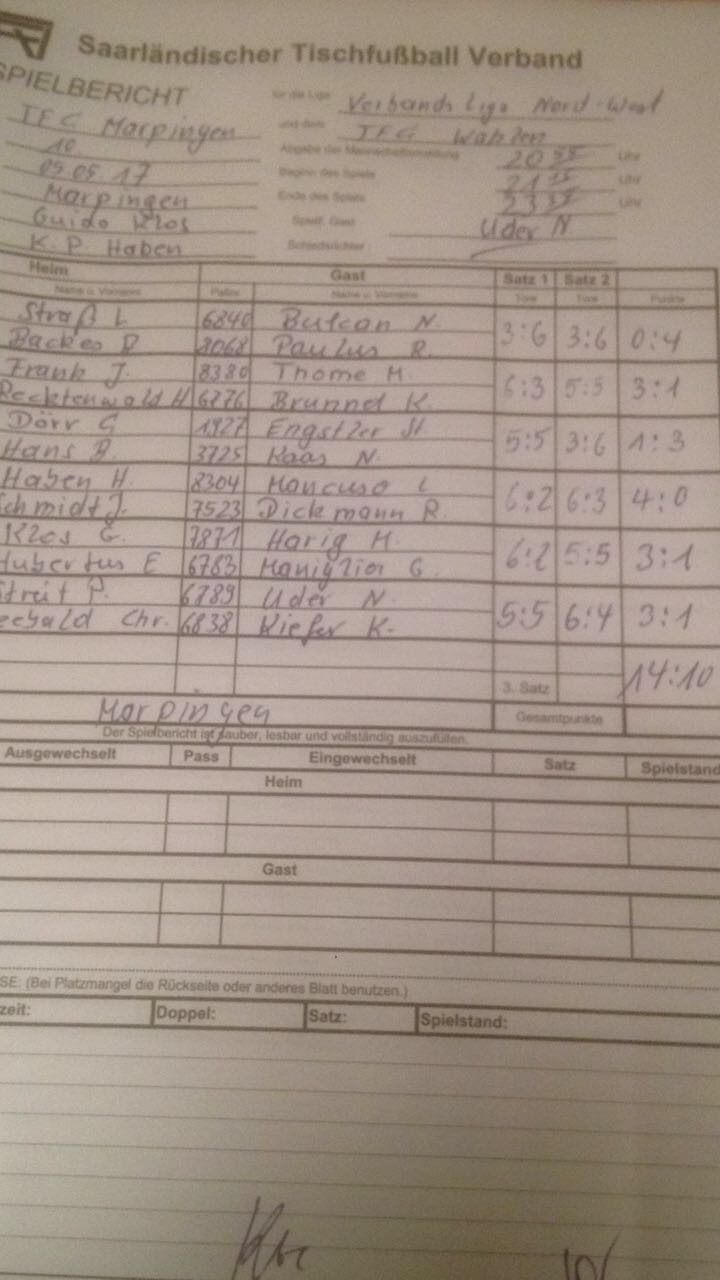 Saarländischer Tischfußball Verband
SPIELBERICHT
für die Liga Verbands Liga Nord-West
TFC Marpingen und dem TFC Wahlen
10. Abgabe der Mannschaftsmeldung 20 Uhr
05.05.17 Beginn des Spiels 21 Uhr
Marpingen Ende des Spiels 23 Uhr
Guido Klos Spielf. Gast Uder N
K.P. Haben Schiedsrichter
Heim Gast Satz 1 Satz 2
Name u. Vorname Paßnr. Name u. Vorname Tore Tore Punkte
Straß L 6840 Bulcan N. 3:6 3:6 0:4
Backes 8068 Paulus R.
Frank J. 8380 Thome M. 6:3 5:5 3:1
Recktenwald H 6276 Brunnet K.
Dörr G 1927 Engstler St. 5:5 3:6 1:3
Hans B. 3725 Kaas N.
Haben H. 8304 Mancuso L 6:2 6:3 4:0
chmidt J. 7523 Dickmann R.
Klos G. 7871 Harig M. 6:2 5:5 3:1
Hubertus E 6783 Maniglior G.
Streit P. 6789 Uder N. 5:5 6:4 3:1
eebald Chr. 6838 Kiefer K.
3. Satz 14:10
Marpingen Gesamtpunkte
Der Spielbericht ist sauber, lesbar und vollständig auszufüllen.
Ausgewechselt Pass Eingewechselt Satz Spielstand
Heim
Gast
SE: (Bei Platzmangel die Rückseite oder anderes Blatt benutzen.)
zeit: Doppel: Satz: Spielstand: